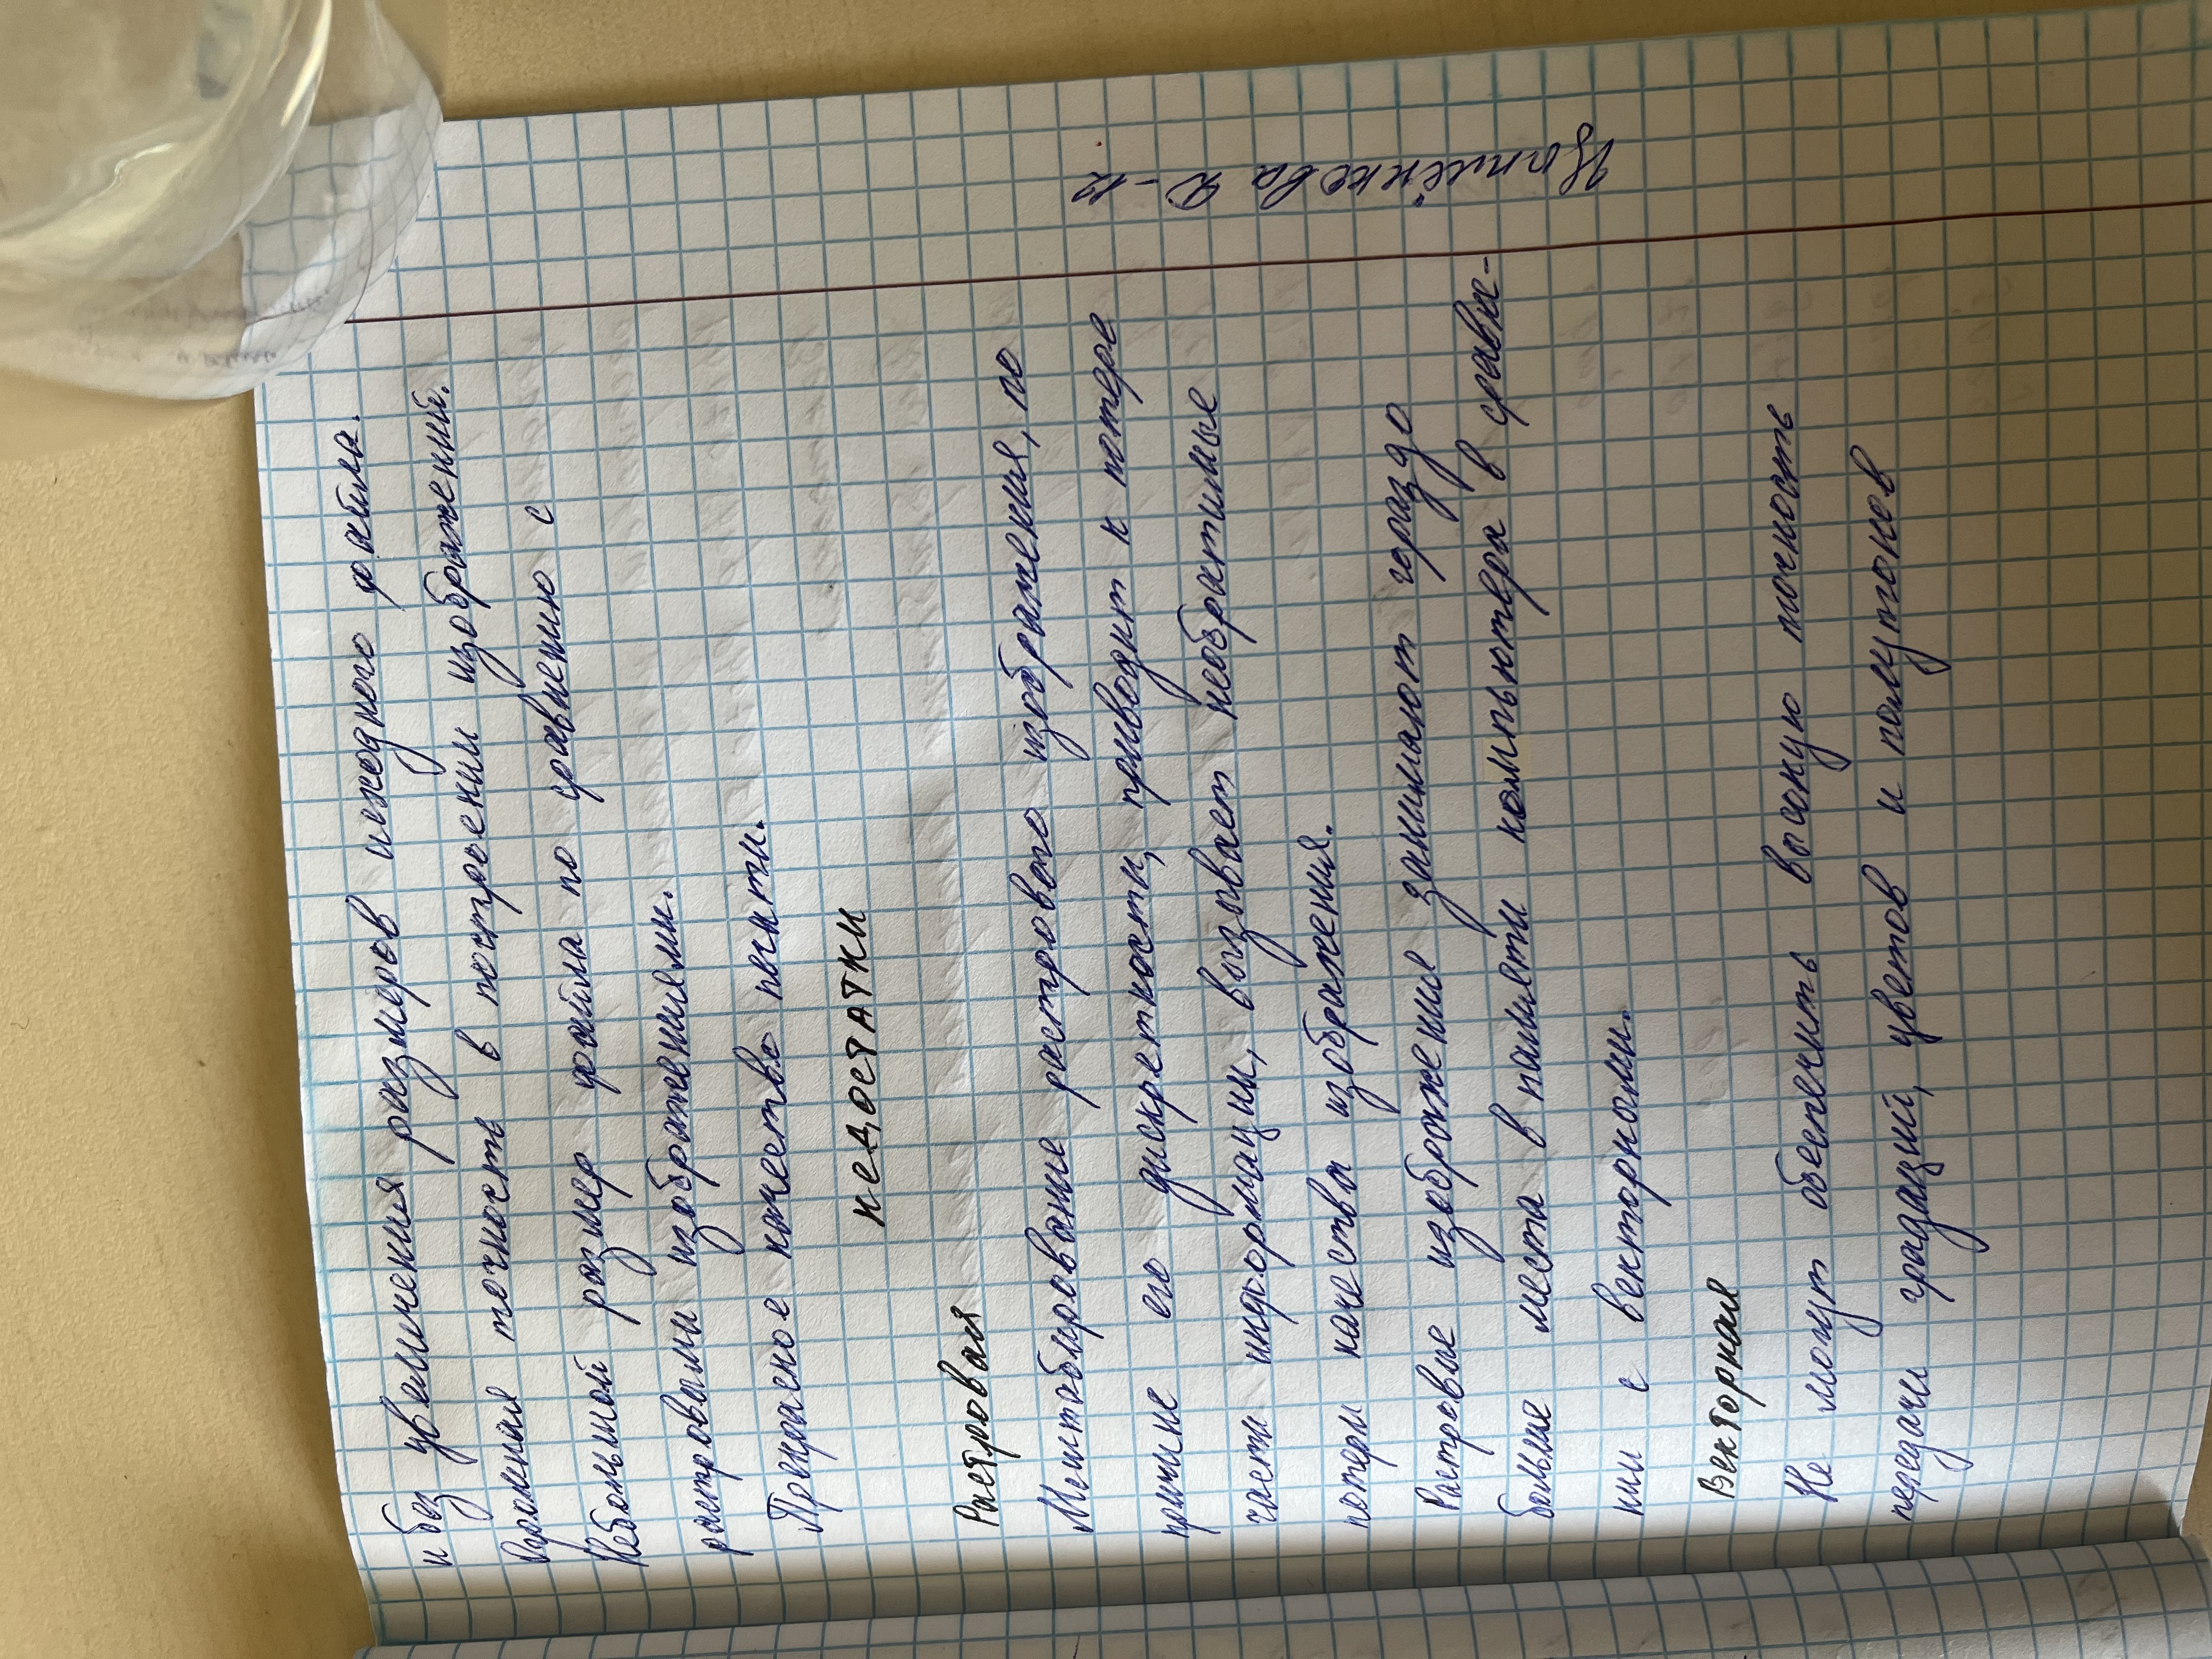 и без увеличения размеров исходного файла.
Огромная точность в построении изображений.
Небольшой размер файла по сравнению с
растровыми изображениями.
Прекрасное качество печати.
НЕДОСТАТКИ
Растровая
Масштабирование растрового изображения, по
причине его дискретности, приводит к потере
части информации, вызывает необратимые
потери качества изображения.
Растровые изображения занимают гораздо
больше места в памяти компьютера в сравне-
нии с векторными.
Векторная
Не могут обеспечить высокую точность
передачи градаций, цветов и полутонов
Д-12